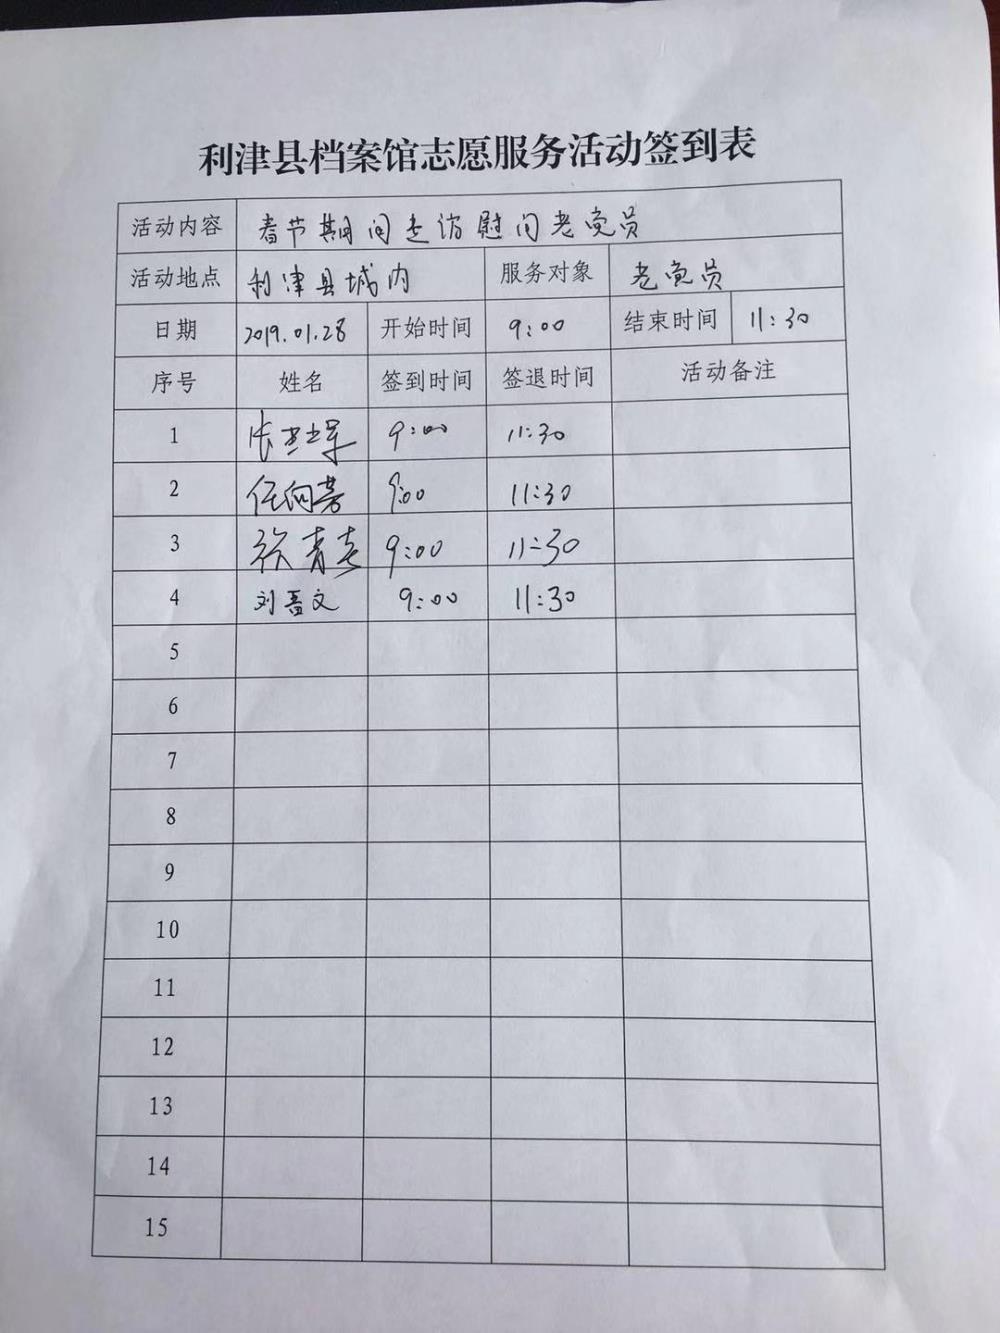 利津县档案馆志愿服务活动签到表
活动内容 春节期间走访慰问老党员
活动地点 利津县城内 服务对象 老党员
日期 2019.01.28 开始时间 9:00 结束时间 11:30
序号 姓名 签到时间 签退时间 活动备注
1 9:00 11:30
2 任向芳 9:00 11:30
3 徐青春 9:00 11:30
4 刘晋文 9:00 11:30
5
6
7
8
9
10
11
12
13
14
15